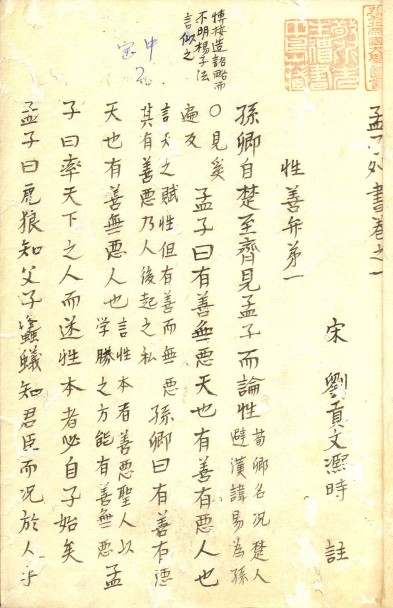 孟子外書卷之一
宋 劉貢文凞時 註
性善弁第一
孫卿自楚至齊見孟子而論性
荀卿名况楚人
避漢諱易為孫
按造語略而
不明楊子法
言似之
〇見奚
遍及
孟子曰有善無惡天也有善有惡人也
言天之賦性但有善而無惡
其有善惡乃人後起之私
孫卿曰有善有惡
天也有善無惡人也
言性本有善惡聖人以
學勝之方能有善無惡
孟
子曰率天下之人而迷性本者必自子始矣
孟子曰虎狼知父子螻蟻知君臣而况於人乎